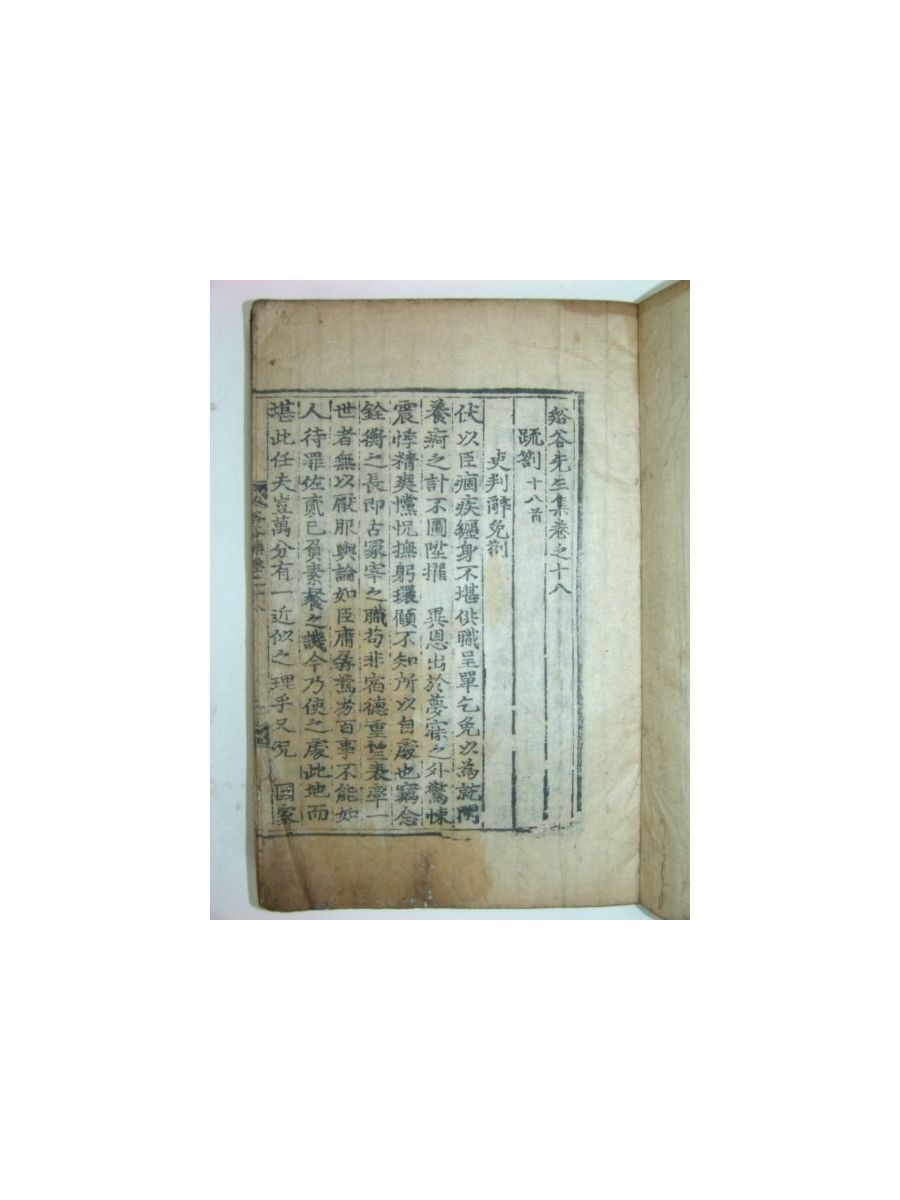 谿谷先生集卷之十八
疏箚 十八首
吏判辭免箚
伏以臣痼疾纏身不堪供職呈單乞免以為就閑
養痾之計不圖陞擢 異恩出於夢寐之外驚悚
震悸精爽懭怳撫躬環顧不知所以自處也竊念
銓衡之長即古冢宰之職苟非宿德重望表率一
世者無以厭服輿論如臣庸孱駑劣百事不能如
人待罪佐貳已負素餐之譏今乃使之處此地而
堪此任夫豈萬分有一近似之理乎又況 國家